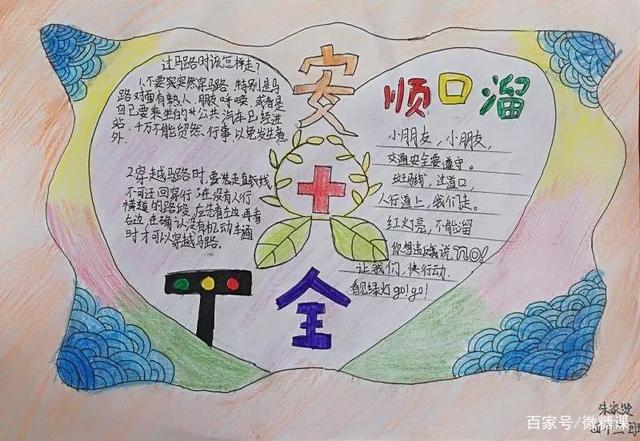 安
全
顺口溜
过马路时该怎样走?
1不要突然横穿马路,特别是马
路对面有熟人、朋友呼唤,或者是
自己要乘坐的公共汽车已经进
站,千万不能贸然行事,以免发生意
外.
2穿越马路时,要走直线
不可迂回穿行;在没有人行
横道的路段,应先看左边,再看
右边,在确认没有机动车通
时才可以穿越马路.
小朋友,小朋友,
交通安全要遵守。
斑马线,过道口,
人行道上,我们走。
红灯亮,不能溜
你想违,我说NO!
让我们,快行动.
看见绿灯go!go!
百家号/微糖课